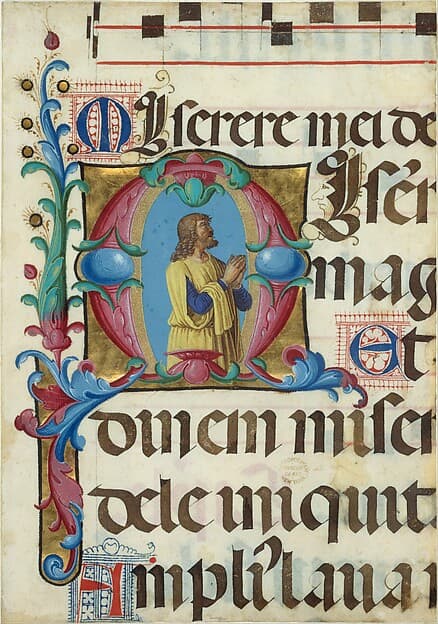 MIserere mei de
MIser
mag
Et
dinem miser
dele iniquit
Ampliꝰ laua